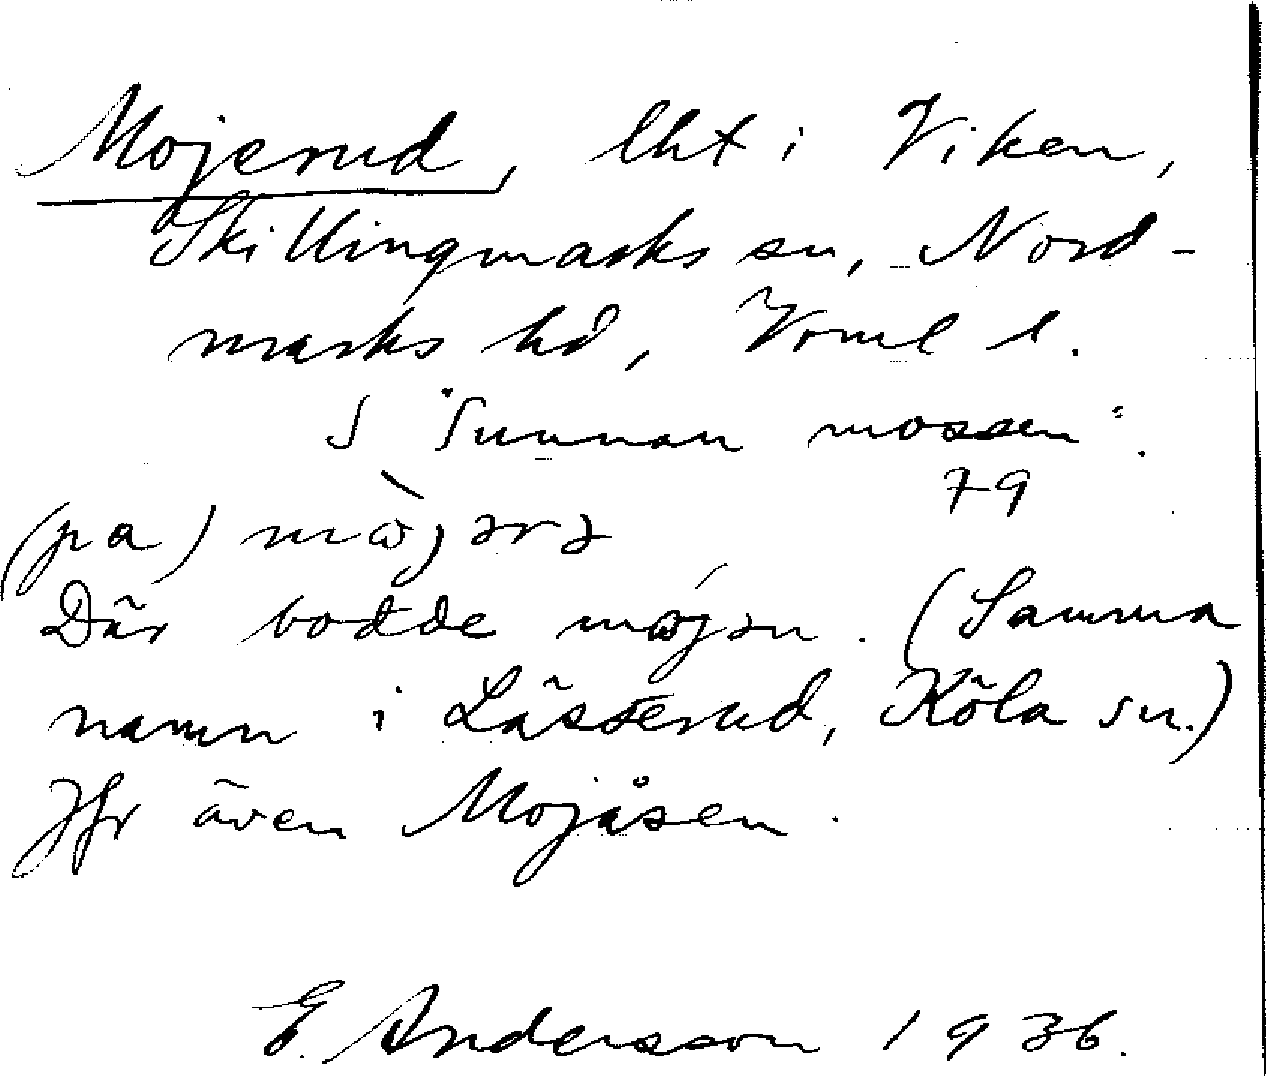 Mojerud, lht i Viken,
Skillingmarks sn, Nord-
marks hd, Vrml l.
S "Sunnan mossen".
79
(pa)
Där bodde (Samma
namn i Lässerud, Köla sn.)
Jfr även Mojåsen.
E. Andersson 1936.